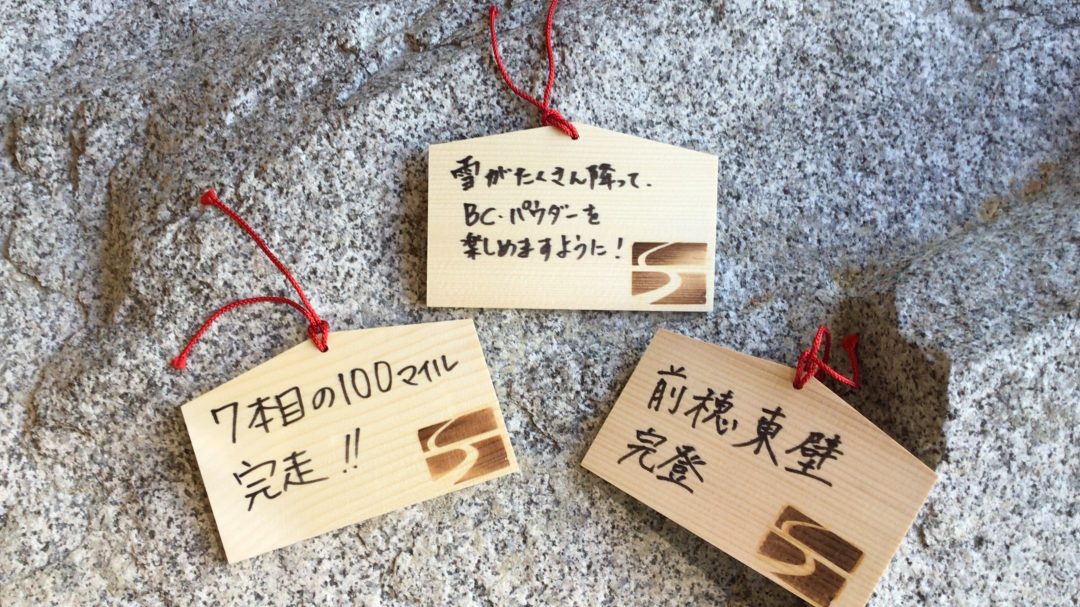 雪がたくさん降って、
BC・パウダーを
楽しめますように!
7本目の100マイル
完走!!
前穂東壁
完登